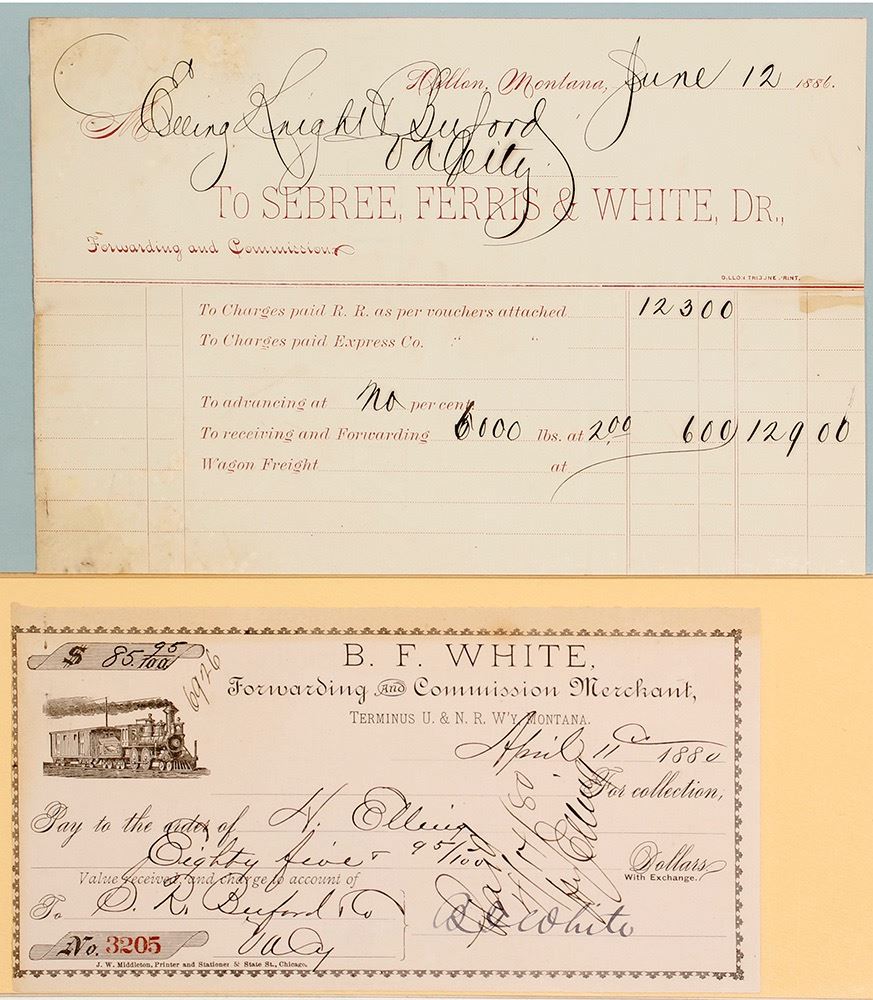 Dillon, Montana, June 12 1886.
M Elling Knight & Buford
Va City
To SEBREE, FERRIS & WHITE, DR.,
Forwarding and Commission
DILLON TRIBUNE PRINT.
To Charges paid R. R. as per vouchers attached 123 00
To Charges paid Express Co. " "
To advancing at No per cent
To receiving and Forwarding 6000 lbs. at 2.00 6 00 129 00
Wagon Freight at
$ 85.95/100
6926
B. F. WHITE,
Forwarding And Commission Merchant,
TERMINUS U. & N. R. W'Y, MONTANA.
April 11 1880
For collection,
Pay to the order of H. Elling
Eighty five & 95/100 Dollars
With Exchange.
Value received, and charge to account of
To S. R. Buford & Co
Va Cy
B F White
4/17/80
H Elling
No. 3205
J. W. Middleton, Printer and Stationer 5½ State St., Chicago.